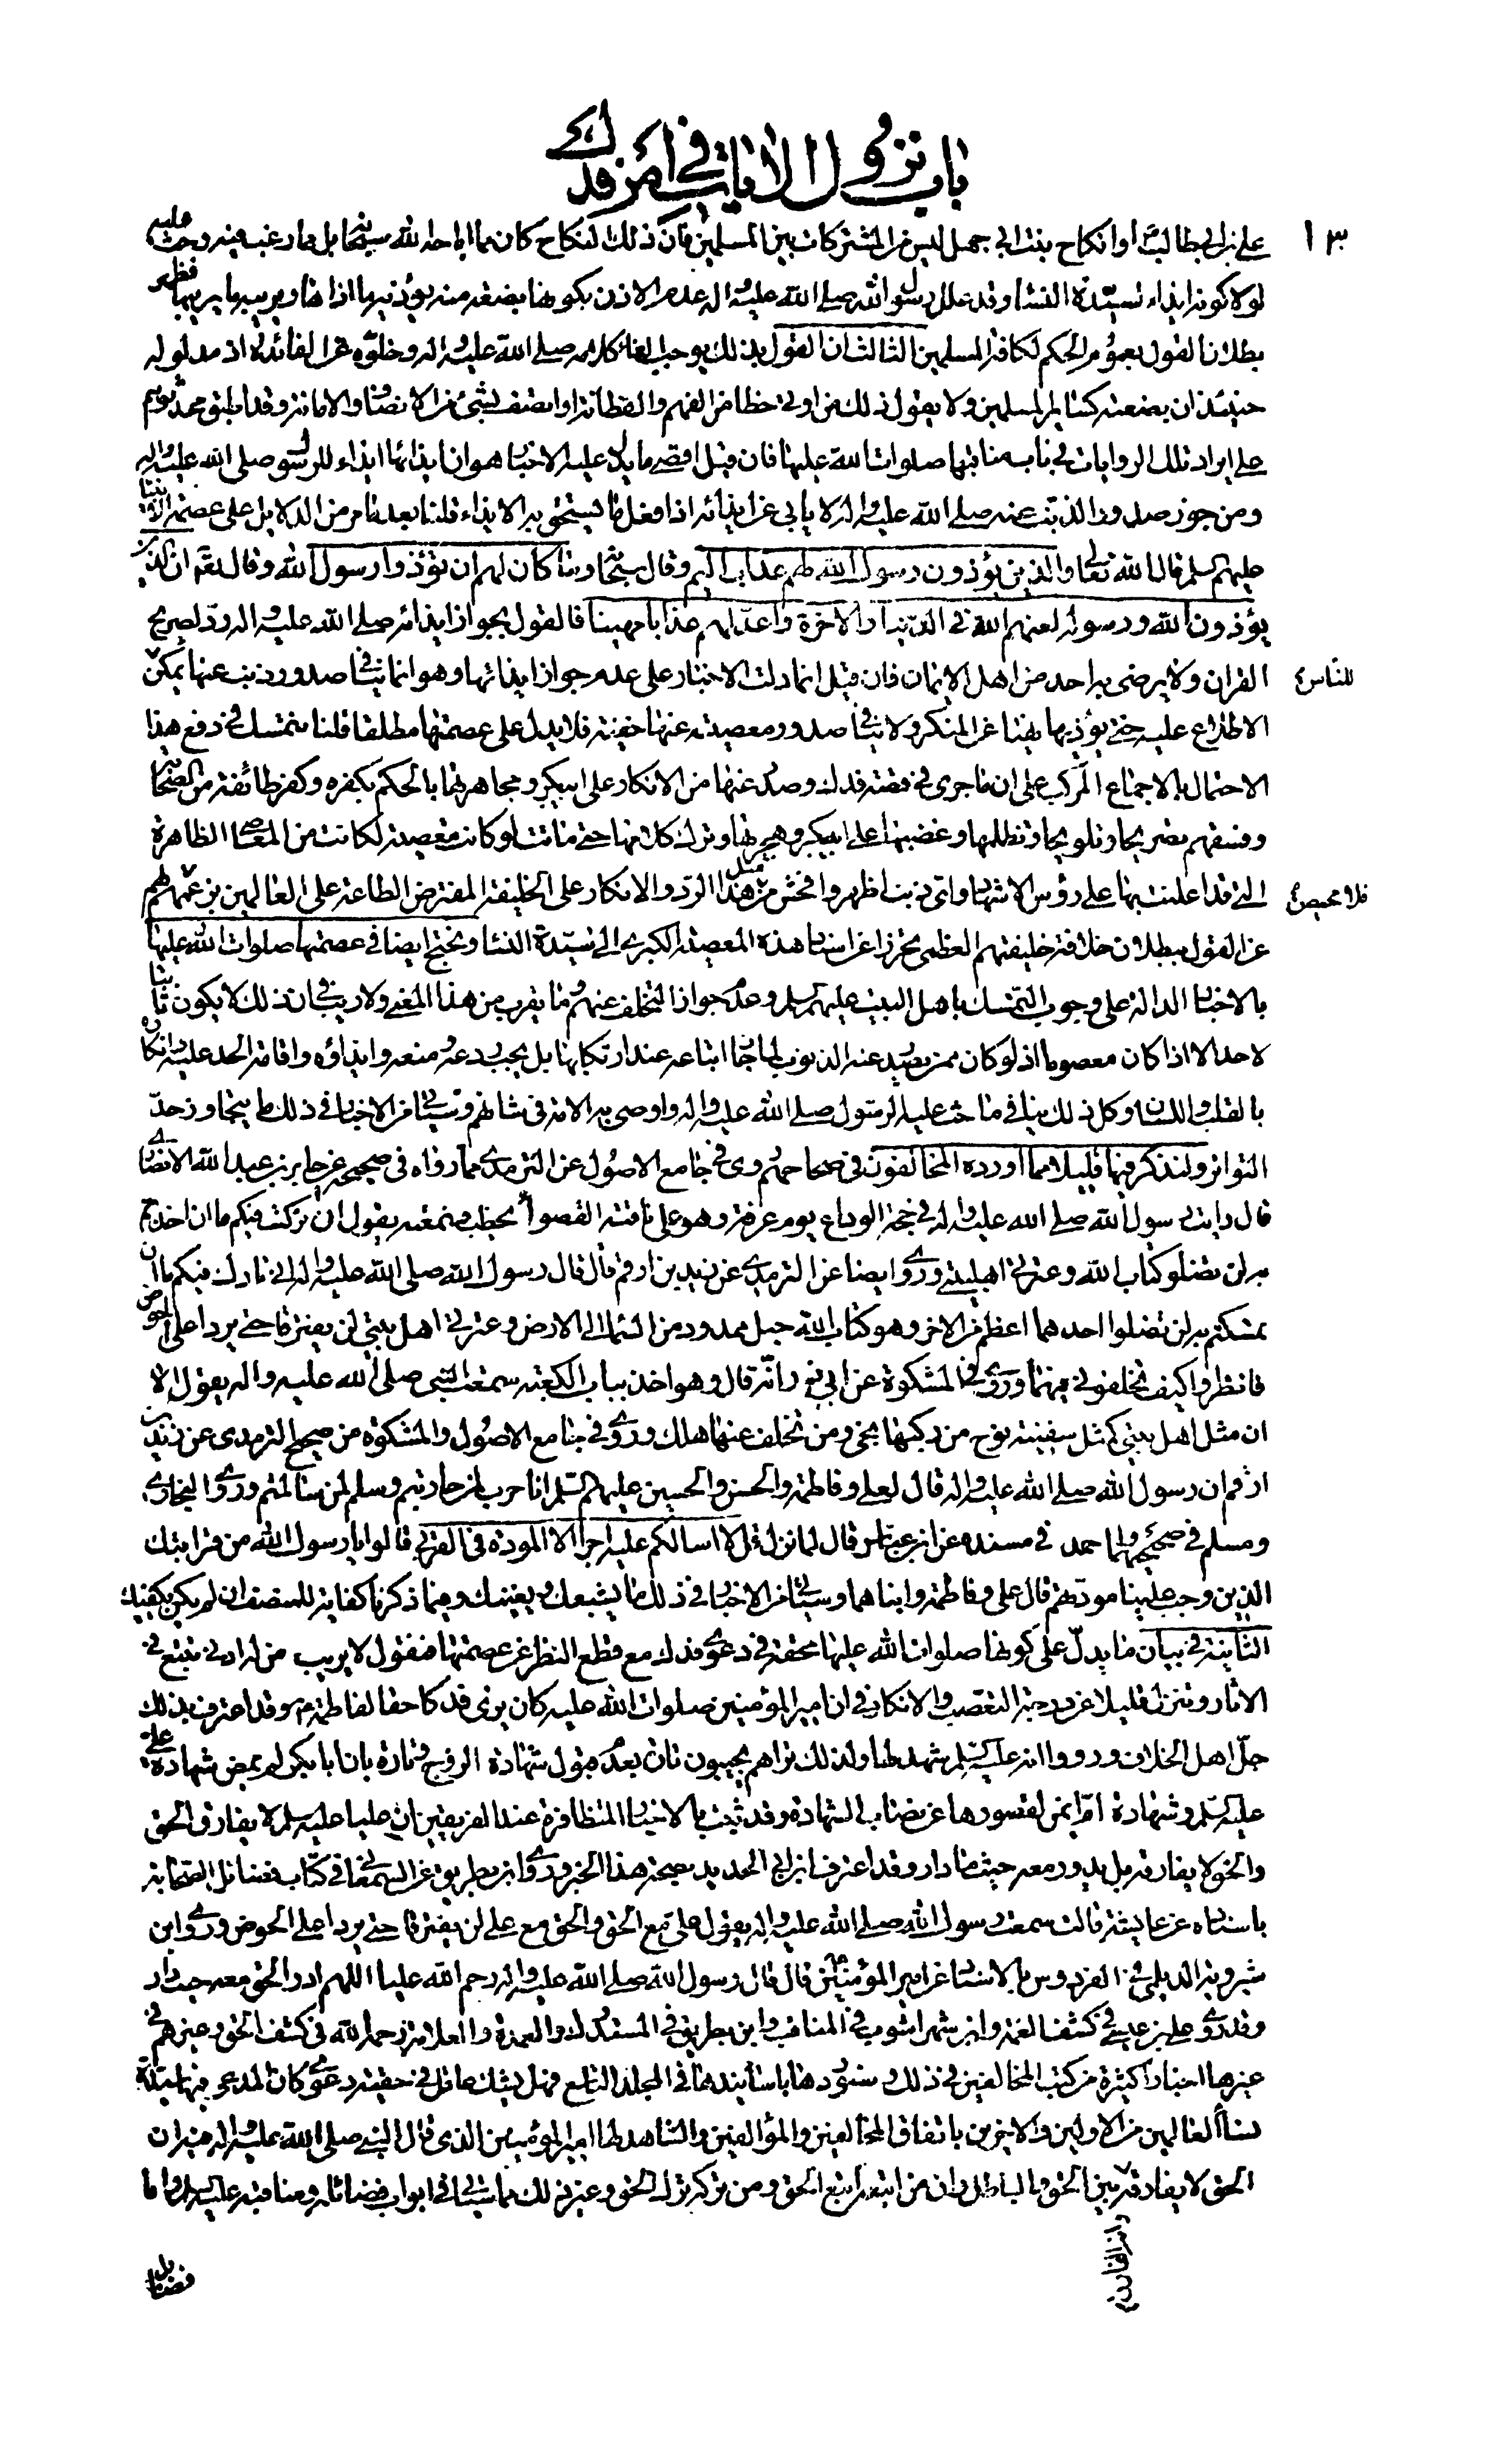 باب نزول الايات في امر فدك
١٣
علي بن ابي طالب او انكاح بنت ابي جهل ليس من المشتركات بين المسلمين فان ذلك النكاح كان مما اباحه الله سبحانه بل مما رغب فيه وحث عليه
لولا كونه ايذاء لسيدة النساء وقد علل رسول الله صلى الله عليه واله عدم الاذن بكونها بضعة منه يؤذيه ما اذاها ويريبه ما يريبها فظهر
بطلان القول بعموم الحكم لكافة المسلمين الثالث ان القول بذلك يوجب الغاء كلامه صلى الله عليه واله وخلوه عن الفائدة اذ مدلوله
حينئذ ان بضعته كساير المسلمين ولا يقول ذلك من اوتي حظا من الفهم والفطانة او اتصف بشئ من الانصاف والامانة وقد اطبق محدثوهم
على ايراد تلك الروايات في باب مناقبها صلوات الله عليها فان قيل اقصى ما يدل عليه الاخبار هو ان ايذائها ايذاء للرسول صلى الله عليه واله
ومن جوز صدور الذنب عنه صلى الله عليه واله لا يابى عن ايذائه اذا فعل ما يستحق به الايذاء قلنا بعد ما مر من الدلايل على عصمة الانبياء
عليهم السلم قال الله تعالى والذين يؤذون رسول الله لهم عذاب اليم وقال سبحانه وما كان لهم ان تؤذوا رسول الله وقال تعالى ان الذين
يؤذون الله ورسوله لعنهم الله في الدنيا والاخرة واعد لهم عذابا مهينا فالقول بجواز ايذائه صلى الله عليه واله رد لصريح
القران ولا يرضى به احد من اهل الايمان فان قيل انما دلت الاخبار على عدم جواز ايذائها وهو انما ينافي صدور ذنب عنها يمكن
للناس
الاطلاع عليه حتى يؤذيها نهيا عن المنكر ولا ينافي صدور معصية عنها خفية فلا يدل على عصمتها مطلقا قلنا نتمسك في دفع هذا
الاحتمال بالاجماع المركب على ان ما جرى في قصة فدك وصدر عنها من الانكار على ابي بكر ومجاهرتها بالحكم بكفره وكفر طائفة من الصحابة
وفسقهم تصريحا وتلويحا وتظلمها وغضبها على ابي بكر وهجرتها وترك كلامها حتى ماتت لو كانت معصية لكانت من المعاصي الظاهرة
التي قد اعلنت بها على رؤس الاشهاد واي ذنب اظهر وافحش من مثل هذا الرد والانكار على الخليفة المفترض الطاعة على العالمين بزعمهم فلا محيص لهم
عن القول ببطلان خلافة خليفتهم العظمى تحرزا عن اسناد هذه المعصية الكبرى الى سيدة النساء ونحتج ايضا في عصمتها صلوات الله عليها
بالاخبار الدالة على وجوب التمسك باهل البيت عليهم السلم وعدم جواز التخلف عنهم وما يقرب من هذا المعنى ولا ريب في ان ذلك لا يكون ثابتا
لاحد الا اذا كان معصوما اذ لو كان ممن يصدر عنه الذنوب لما جاز اتباعه عند ارتكابها بل يجب ردعه ومنعه وايذاؤه واقامة الحد عليه وانكاره
بالقلب واللسان وكل ذلك ينافي ما حث عليه الرسول صلى الله عليه واله واوصى به الامة في شانهم وسياتي من الاخبار في ذلك ما يتجاوز حد
التواتر ولنذكر فيها قليلا مما اورده المخالفون في صحاحهم روى في جامع الاصول عن الترمذي مما رواه في صحيحه عن جابر بن عبد الله الانصاري
قال رايت رسول الله صلى الله عليه واله في حجة الوداع يوم عرفة وهو على ناقته القصواء يخطب فسمعته يقول اني تركت فيكم ما ان اخذتم
به لن تضلوا كتاب الله وعترتي اهل بيتي وروى ايضا عن الترمذي عن زيد بن ارقم قال قال رسول الله صلى الله عليه واله اني تارك فيكم ما ان
تمسكتم به لن تضلوا احدهما اعظم من الاخر وهو كتاب الله حبل ممدود من السماء الى الارض وعترتي اهل بيتي لن يفترقا حتى يردا على الحوض
فانظروا كيف تخلفوني فيهما وروى في المشكوة عن ابي ذر انه قال وهو اخذ بباب الكعبة سمعت النبي صلى الله عليه واله يقول الا
ان مثل اهل بيتي كمثل سفينة نوح من ركبها نجى ومن تخلف عنها هلك وروى في جامع الاصول والمشكوة من صحيح الترمذي عن زيد بن
ارقم ان رسول الله صلى الله عليه واله قال لعلي وفاطمة والحسن والحسين عليهم السلم انا حرب لمن حاربتم وسلم لمن سالمتم وروى البخاري
ومسلم في صحيحهما واحمد في مسنده عن ابن عباس قال لما نزل قل لا اسالكم عليه اجرا الا المودة في القربى قالوا يا رسول الله من قرابتك
الذين وجب علينا مودتهم قال علي وفاطمة وابناهما وسياتي من الاخبار في ذلك ما يشبعك ويغنيك وفيما ذكرنا كفاية للمنصف ان لم يكن يكفيك
الثانية في بيان ما يدل على كونها صلوات الله عليها محقة في دعوى فدك مع قطع النظر عن عصمتها فنقول لا ريب من له ادنى تتبع في
الاثار وتنزل قليلا عن درجة التعصب والانكار في ان امير المؤمنين صلوات الله عليه كان يرى فدكا حقا لفاطمة وقد اعترف بذلك
جل اهل الخلاف ورووا انه عليه السلم شهد لها ولذلك تراهم يجيبون تارة بعدم قبول شهادة الزوج وتارة بان ابا بكر لم يمض شهادة علي
عليه السلم وشهادة ام ايمن لقصورها عن نصاب الشهادة وقد ثبت بالاخبار المتظافرة عند الفريقين ان عليا عليه السلم لا يفارق الحق
والحق لا يفارقه بل يدور معه حيث ما دار وقد اعترف ابن ابي الحديد بصحة هذا الخبر وروى ابن بطريق عن السمعاني في كتاب فضائل الصحابة
باسناده عن عايشة قالت سمعت رسول الله صلى الله عليه واله يقول علي مع الحق والحق مع علي لن يفترقا حتى يردا على الحوض وروى ابن
شيرويه الديلمي في الفردوس بالاسناد عن امير المؤمنين قال قال رسول الله صلى الله عليه واله رحم الله عليا اللهم ادر الحق معه حيث دار
وقد روى علي بن عيسى في كشف الغمة وابن شهراشوب في المناقب وابن بطريق في المستدرك والعمدة والعلامة رحمه الله في كشف الحق وغيرهم في
غيرها اخبارا كثيرة من كتب المخالفين في ذلك وسنوردها باسانيدها في المجلد التاسع فهل يشك عاقل في حقية دعوى كان المدعي فيها سيدة
نساء العالمين من الاولين والاخرين باتفاق المخالفين والمؤالفين والشاهد لها امير المؤمنين الذي قال النبي صلى الله عليه واله فيه ان
الحق لا يفارقه وانه الفاروق بين الحق والباطل وان من اتبعه اتبع الحق ومن تركه ترك الحق وغير ذلك مما سياتي في ابواب فضائله ومناقبه عليه السلم واما
فضايل